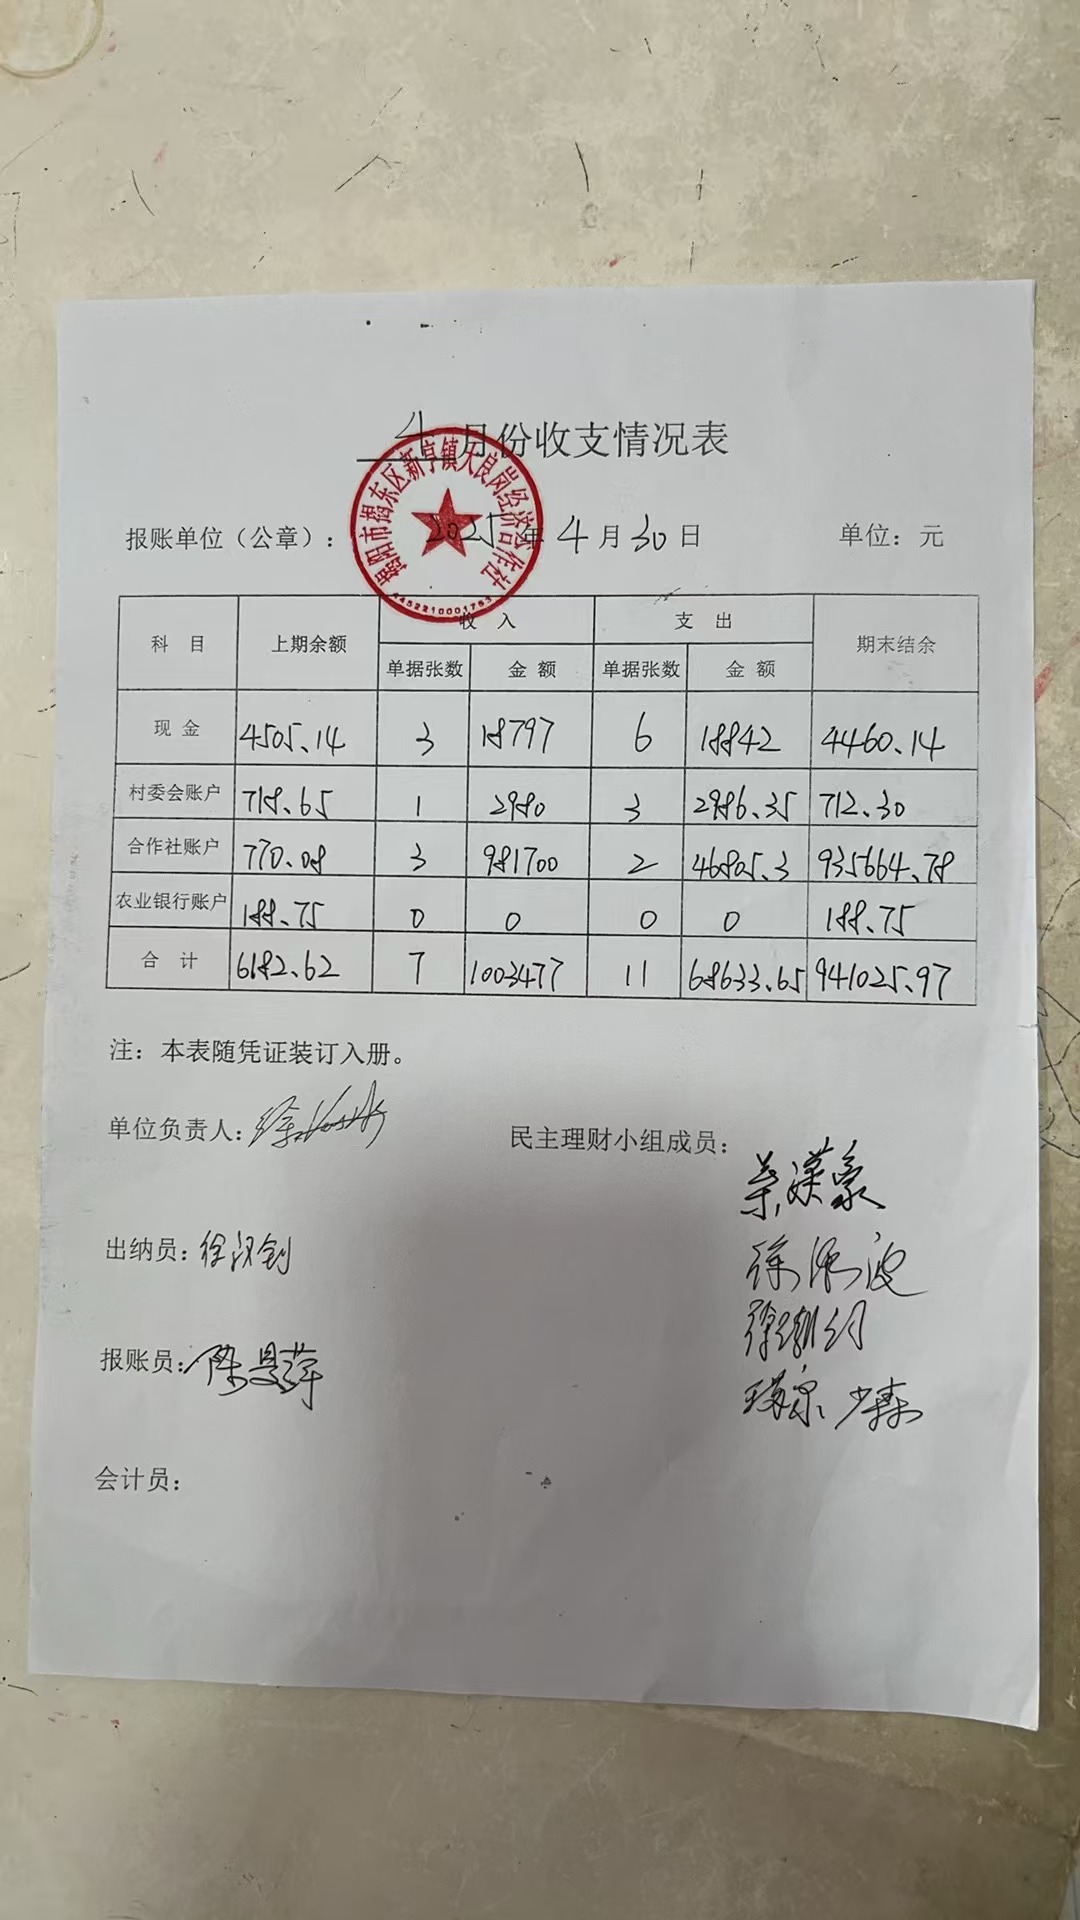 4月份收支情况表
揭阳市揭东区新亨镇大良岗经济合作社
4452210001753
报账单位（公章）： 2025年4月30日 单位：元
科 目 上期余额 收 入 支 出 期末结余
单据张数 金 额 单据张数 金 额
现 金 4505.14 3 18797 6 18842 4460.14
村委会账户 718.65 1 2980 3 2986.35 712.30
合作社账户 770.08 3 981700 2 46805.3 935664.78
农业银行账户 188.75 0 0 0 0 188.75
合 计 6182.62 7 1003477 11 68633.65 941025.97
注：本表随凭证装订入册。
单位负责人： 民主理财小组成员：
出纳员：
报账员：
会计员：